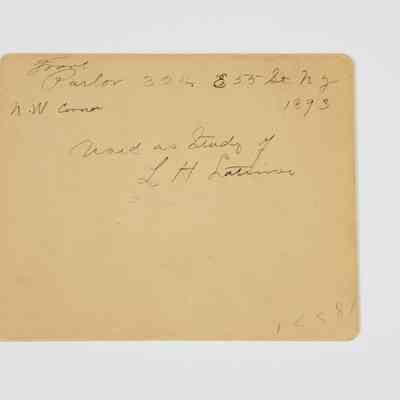 Front
Parlor 324 E 55 St N Y
N.W Corner 1893
Used as Study of
L H Latimer